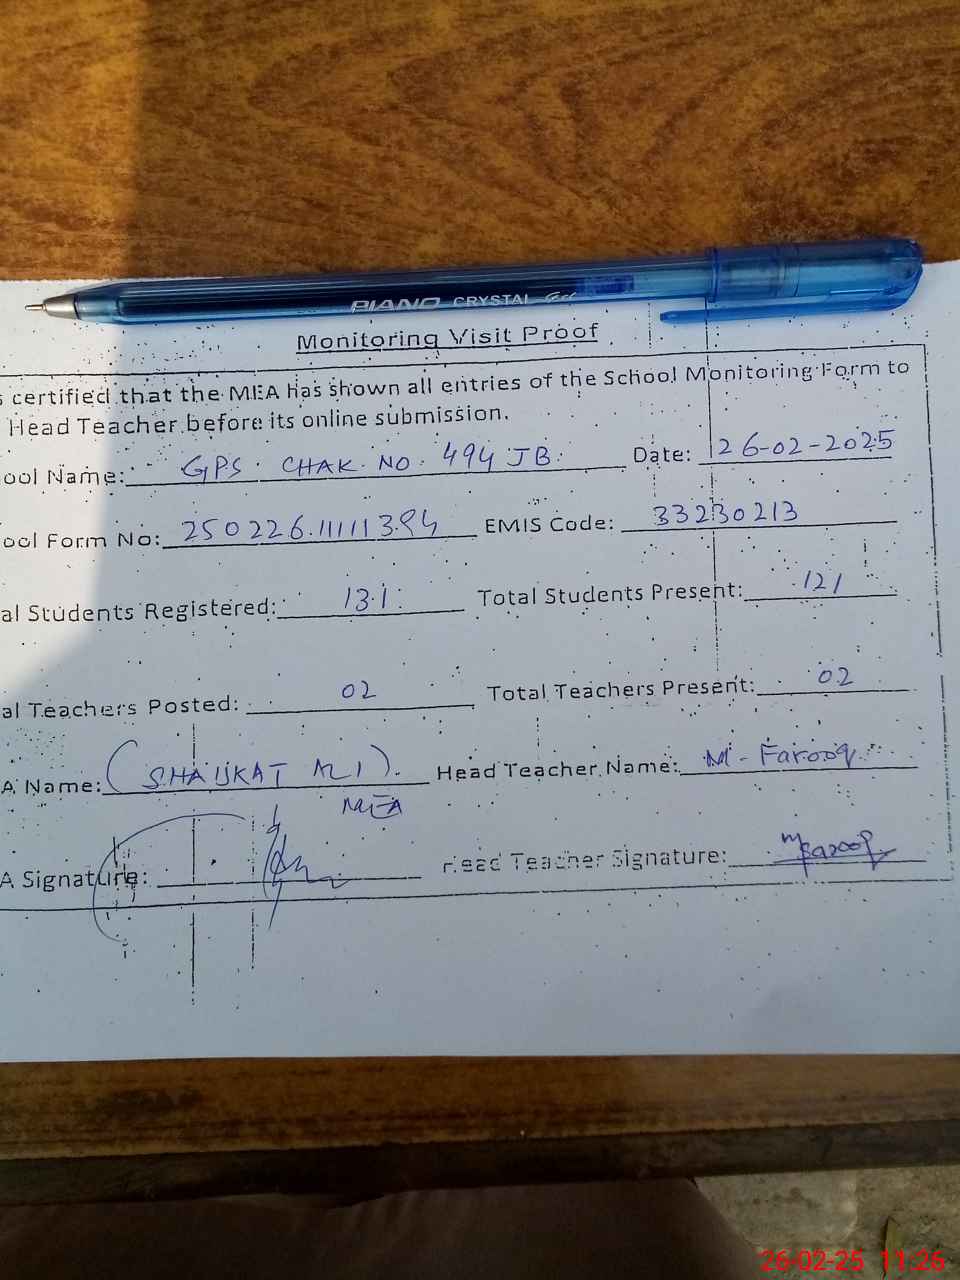 PIANO CRYSTAL Gel
Monitoring Visit Proof
s certified that the MEA has shown all entries of the School Monitoring Form to
Head Teacher before its online submission.
ool Name: GPS. CHAK. NO. 494 JB. Date: 26-02-2025
ool Form No: 250226.11111394 EMIS Code: 33230213
al Students Registered: 131 Total Students Present: 121
al Teachers Posted: 02 Total Teachers Present: 02
A Name: (SHAUKAT ALI). Head Teacher Name: M-Farooq
MEA
A Signature: Head Teacher Signature: mfarooq
26-02-25 11:26